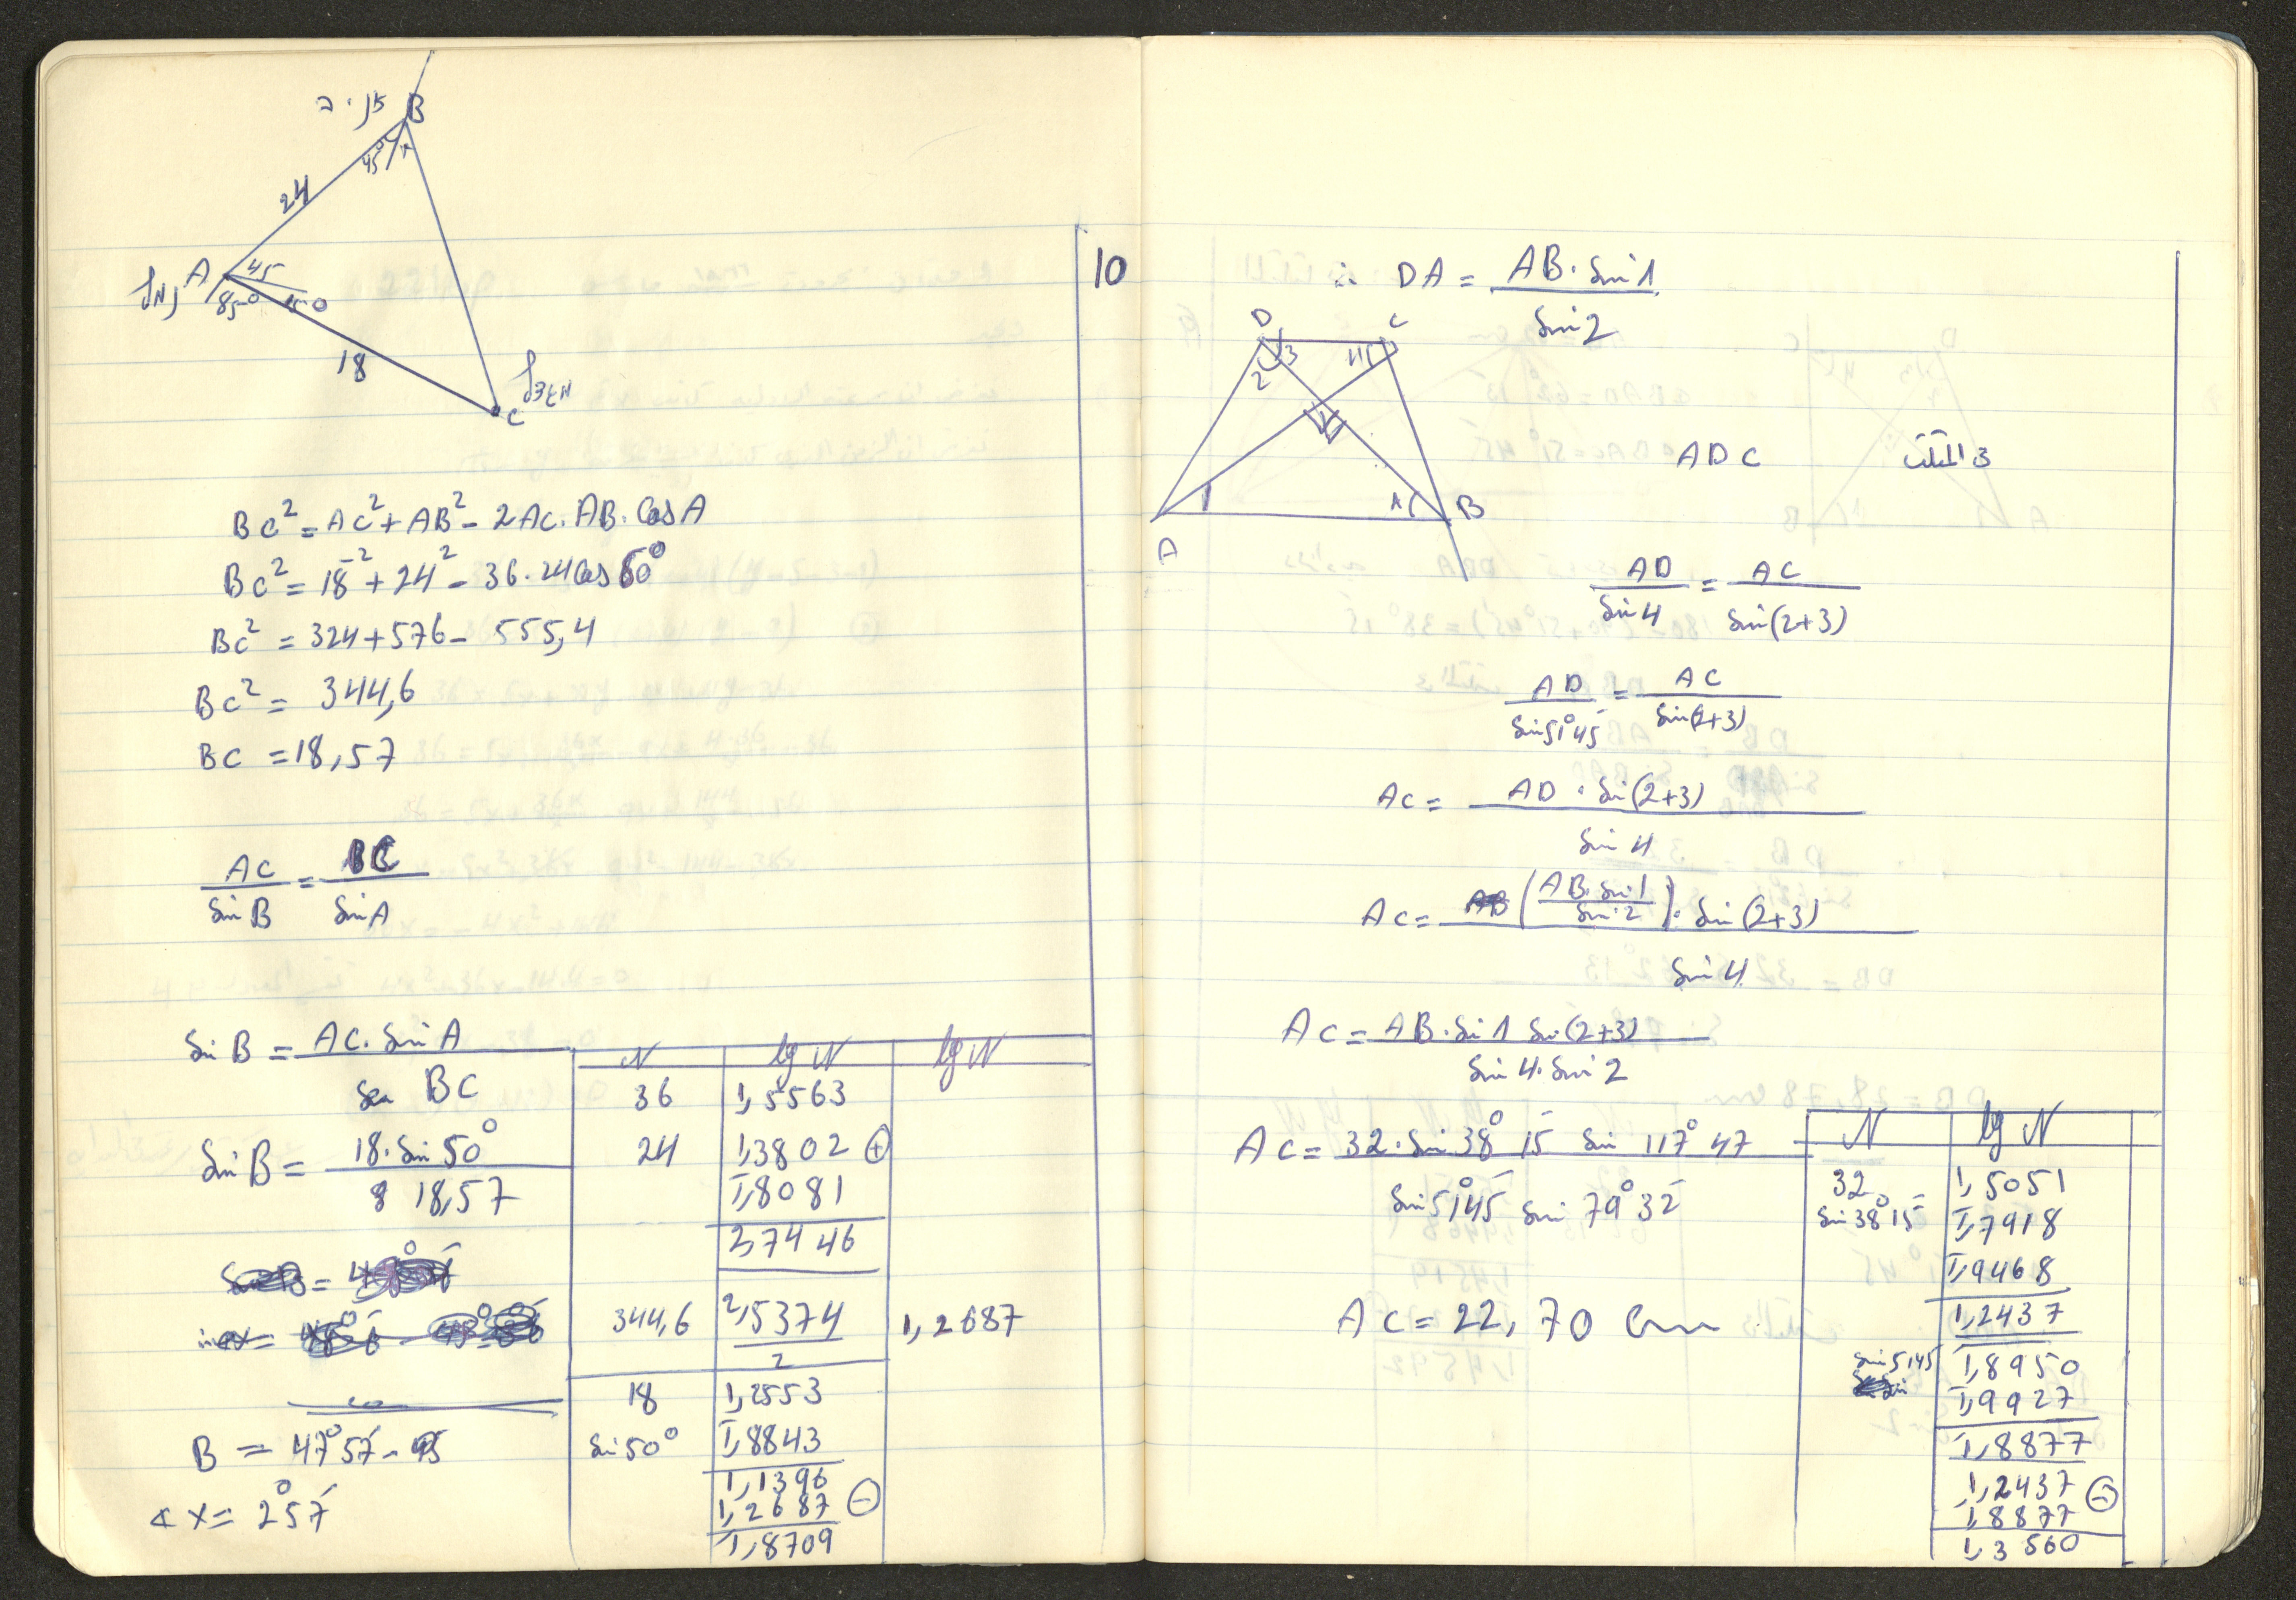 B
45°
24
A
45
85°
18
C
BC² = AC² + AB² - 2AC. AB. Cos A
BC² = 18² + 24² - 36. 24 Cos 50°
BC² = 324 + 576 - 555,4
BC² = 344,6
BC = 18,57
AC / Sin B = BC / Sin A
Sin B = AC. Sin A / BC
Sin B = 18. Sin 50° / 18,57
B = 47°57' - 45
∢ x = 2°57'
N lg N lg N
36 1,5563
24 1,3802 +
1̄,8081
2,7446
344,6 2,5374 1,2687
2
18 1,2553
Sin 50° 1̄,8843
1,1396
1,2687 -
1̄,8709
10
∴ DA = AB. Sin 1 / Sin 2
D C
3 4
2
1 1 B
A
ADC المثلث 3
AD / Sin 4 = AC / Sin(2+3)
AD / Sin 51°45' = AC / Sin(2+3)
AC = AD . Sin(2+3) / Sin 4
AC = (AB. Sin 1 / Sin 2) . Sin (2+3) / Sin 4
AC = AB. Sin 1 Sin(2+3) / Sin 4. Sin 2
AC = 32. Sin 38°15' Sin 117°47 / Sin 51°45' Sin 79°32'
AC = 22,70 cm
N lg N
32 1,5051
Sin 38°15' 1̄,7918
1̄,9468
1,2437
Sin 5145 1̄,8950
1̄,9927
1̄,8877
1,2437 -
1̄,8877
1,3560